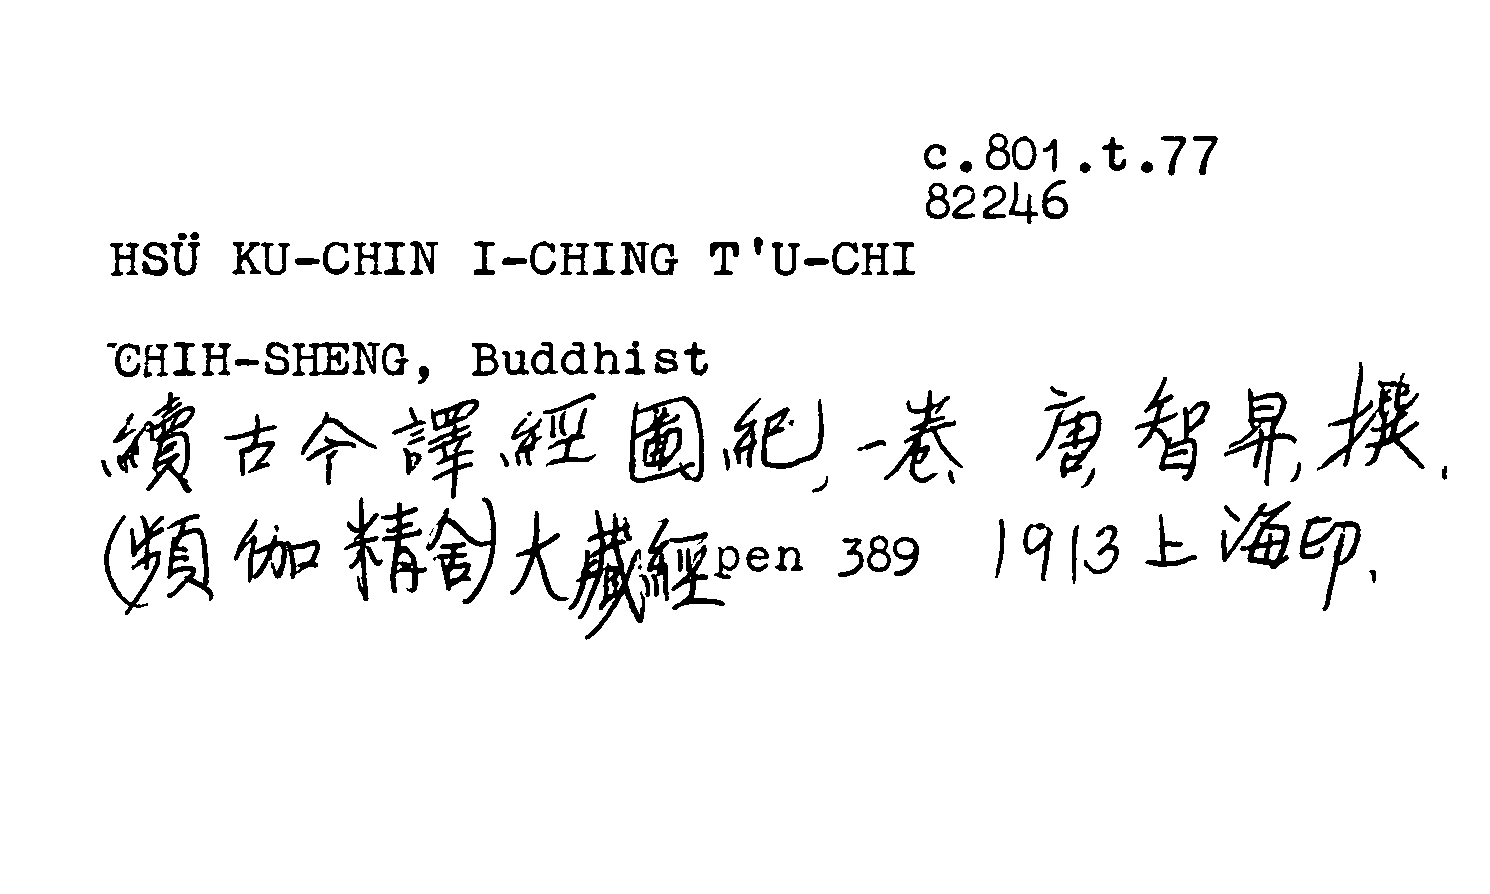 c.801.t.77
82246
HSÜ KU-CHIN I-CHING T'U-CHI
CHIH-SHENG, Buddhist
續古今譯經圖紀, 一卷 唐, 智昇, 撰.
(頻伽精舍) 大藏經 pen 389 1913 上海印.